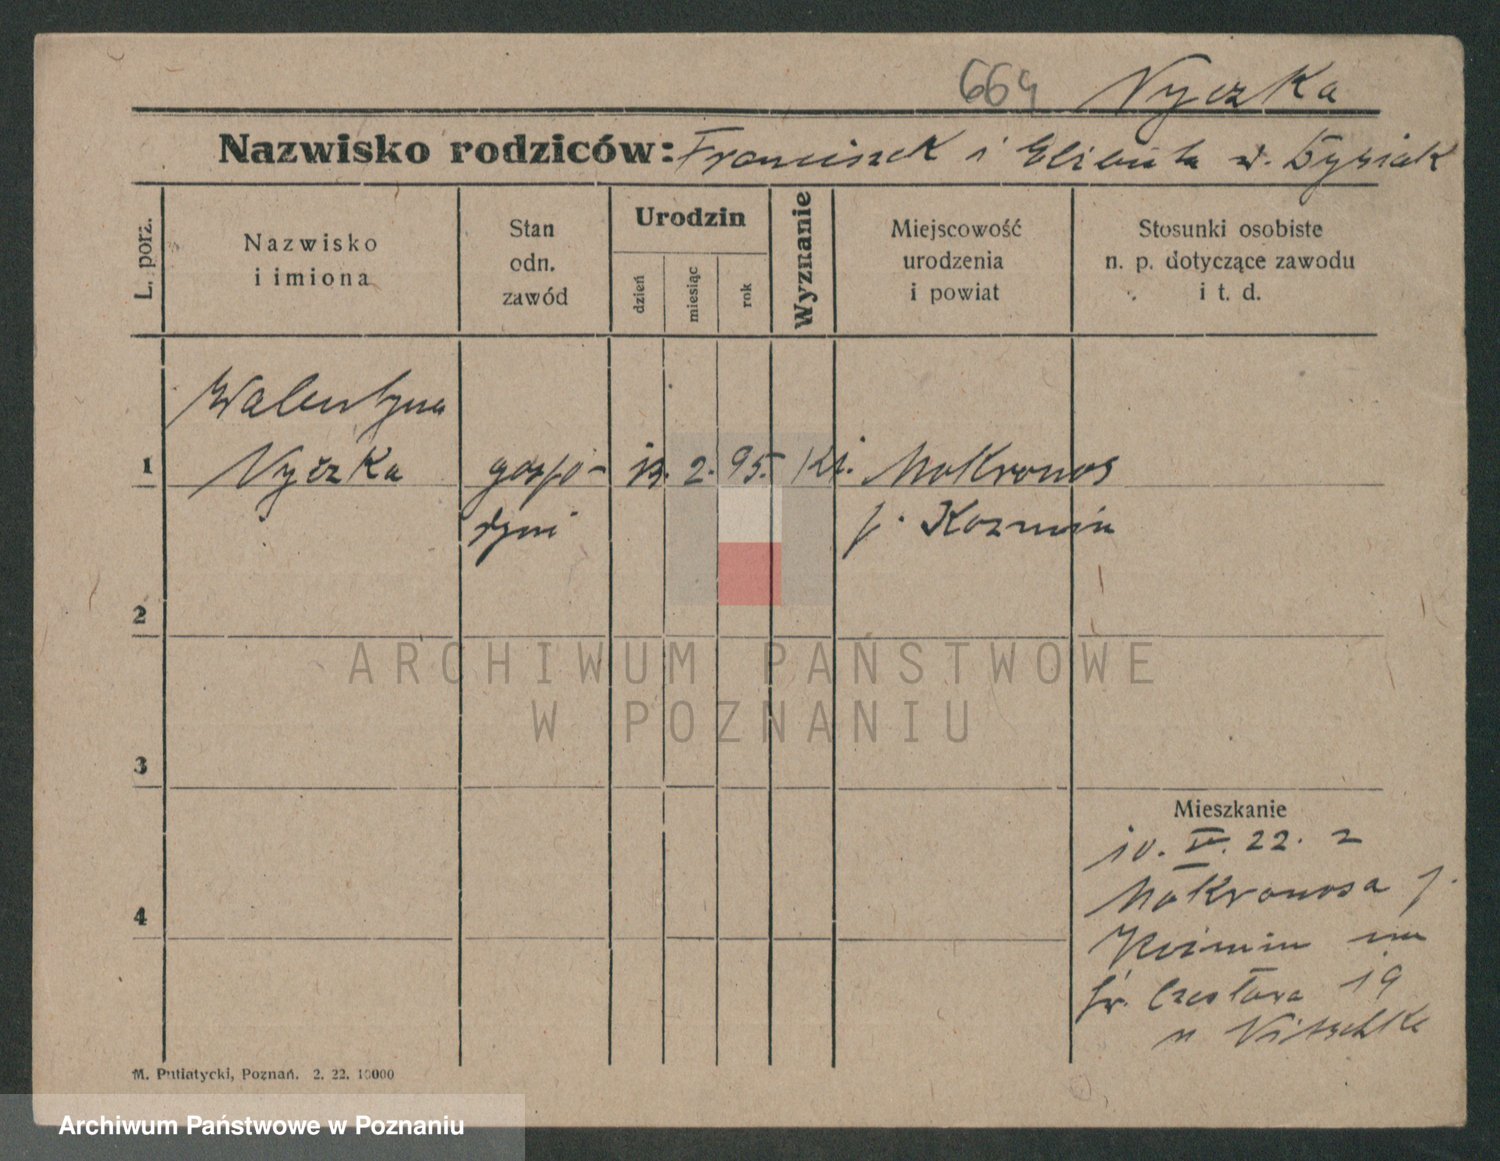 664 Nyczka
Nazwisko rodziców: Franciszek i Elżbieta z d.
L. porz.
Nazwisko
i imiona
Stan
odn.
zawód
Urodzin
dzień
miesiąc
rok
Wyznanie
Miejscowość
urodzenia
i powiat
Stosunki osobiste
n. p. dotyczące zawodu
i t. d.
Walentyna
1 Nyczka gospo- 13. 2. 95. kt. Mokronos
dyni p. Koźmin
2
3
4
Mieszkanie
10. IV. 22. z
Mokronosa p.
Koźmin na
Św. Czesława 19
u Nitschke
M. Putiatycki, Poznań. 2. 22. 10000
ARCHIWUM PAŃSTWOWE
W POZNANIU
Archiwum Państwowe w Poznaniu